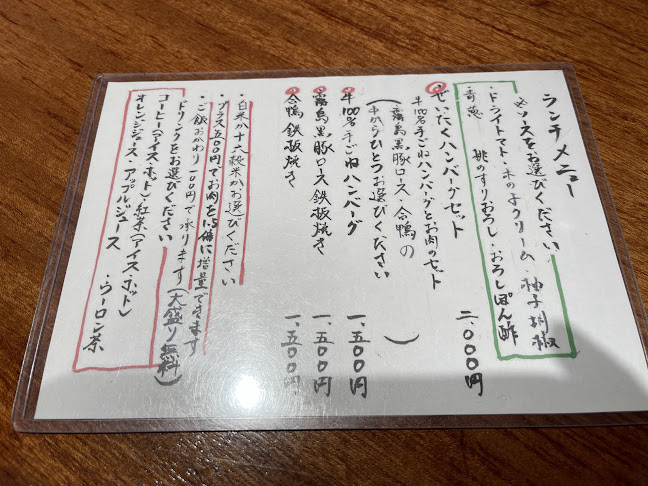 ランチメニュー
※ソースをお選びください
・ドライトマト・木の子クリーム・柚子胡椒
青葱 桃のすりおろし・おろしぽん酢
ぜいたくハンバーグセット 二、〇〇〇円
牛100%手ごねハンバーグとお肉のセット
(霧島黒豚ロース・合鴨の
中からひとつお選びください)
牛100%手ごねハンバーグ 一、五〇〇円
霧島黒豚ロース鉄板焼き 一、五〇〇円
合鴨鉄板焼き 一、五〇〇円
・白米か十六穀米かお選びください
・プラス500円でお肉を1.5倍に増量できます
・ご飯おかわり100円で承ります(大盛り無料)
ドリンクをお選びください
コーヒー(アイス・ホット)・紅茶(アイス・ホット)
オレンジジュース・アップルジュース・ウーロン茶